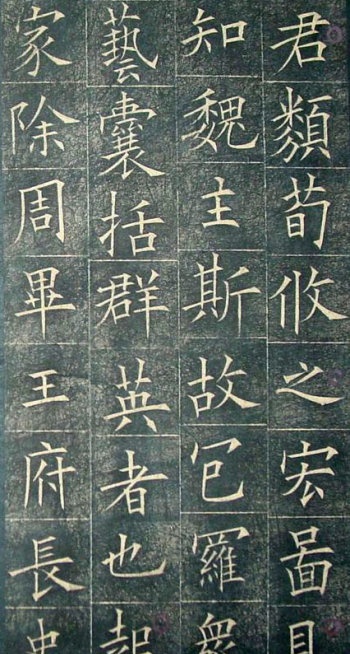 君類荀攸之宏啚見
知魏主斯故包羅衆
藝囊括群英者也起
家除周畢王府長史